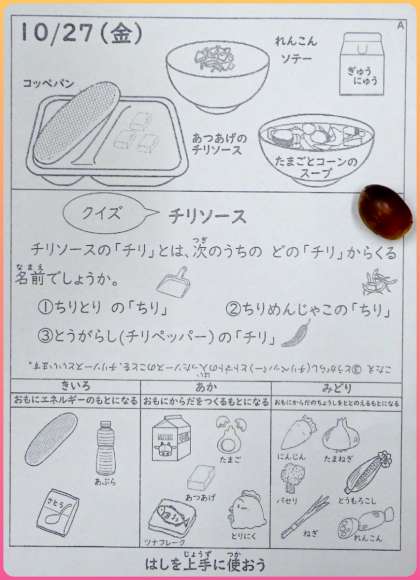 10/27(金)
A
れんこん
ソテー
ぎゅう
にゅう
コッペパン
あつあげの
チリソース
たまごとコーンの
スープ
クイズ
チリソース
チリソースの「チリ」とは、次のうちの どの「チリ」からくる
つぎ
名前でしょうか。
なまえ
①ちりとり の「ちり」
②ちりめんじゃこの「ちり」
③とうがらし(チリペッパー)の「チリ」
こたえ ③とうがらし(チリペッパー)とトマトの入ったソースのことを、チリソースといいます。
きいろ
あか
みどり
おもにエネルギーのもとになる
おもにからだをつくるもとになる
おもにからだのちょうしをととのえるもとになる
あぶら
さとう
たまご
あつあげ
ツナフレーク
とりにく
にんじん
たまねぎ
パセリ
とうもろこし
ねぎ
れんこん
はしを上手に使おう
じょうず
つか